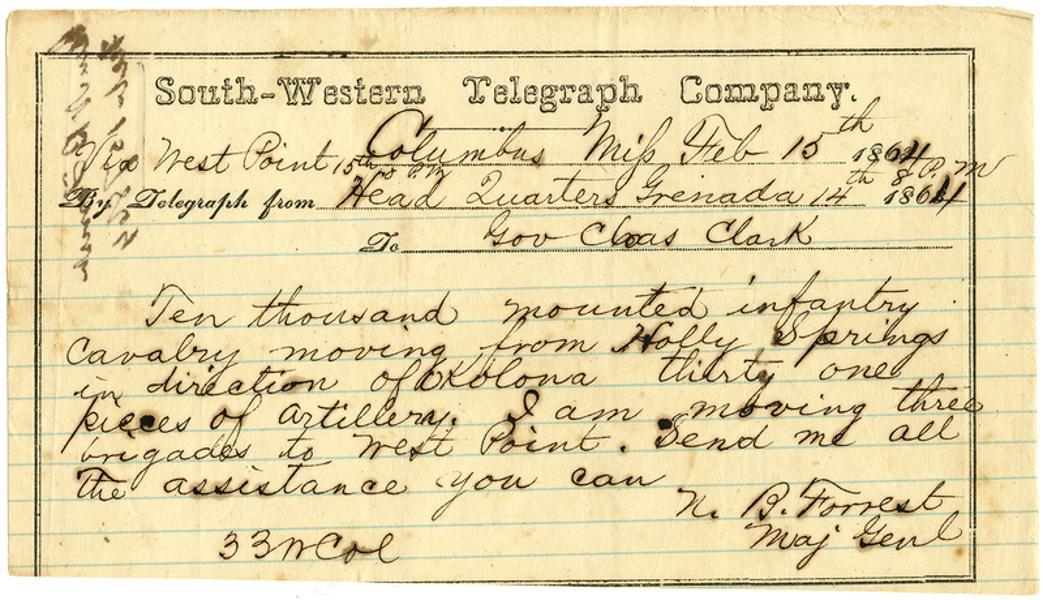 South-Western Telegraph Company.
Columbus Miss Feb 15th 1864
Via West Point 15th P.M
By Telegraph from Head Quarters Grenada 14th 8 P.M 1864
To Gov Chas Clark
Ten thousand mounted infantry
Cavalry moving from Holly Springs
in direction of Okolona thirty one
pieces of artillery. I am moving three
brigades to West Point. Send me all
the assistance you can
N. B. Forrest
Maj Genl
33 W Col